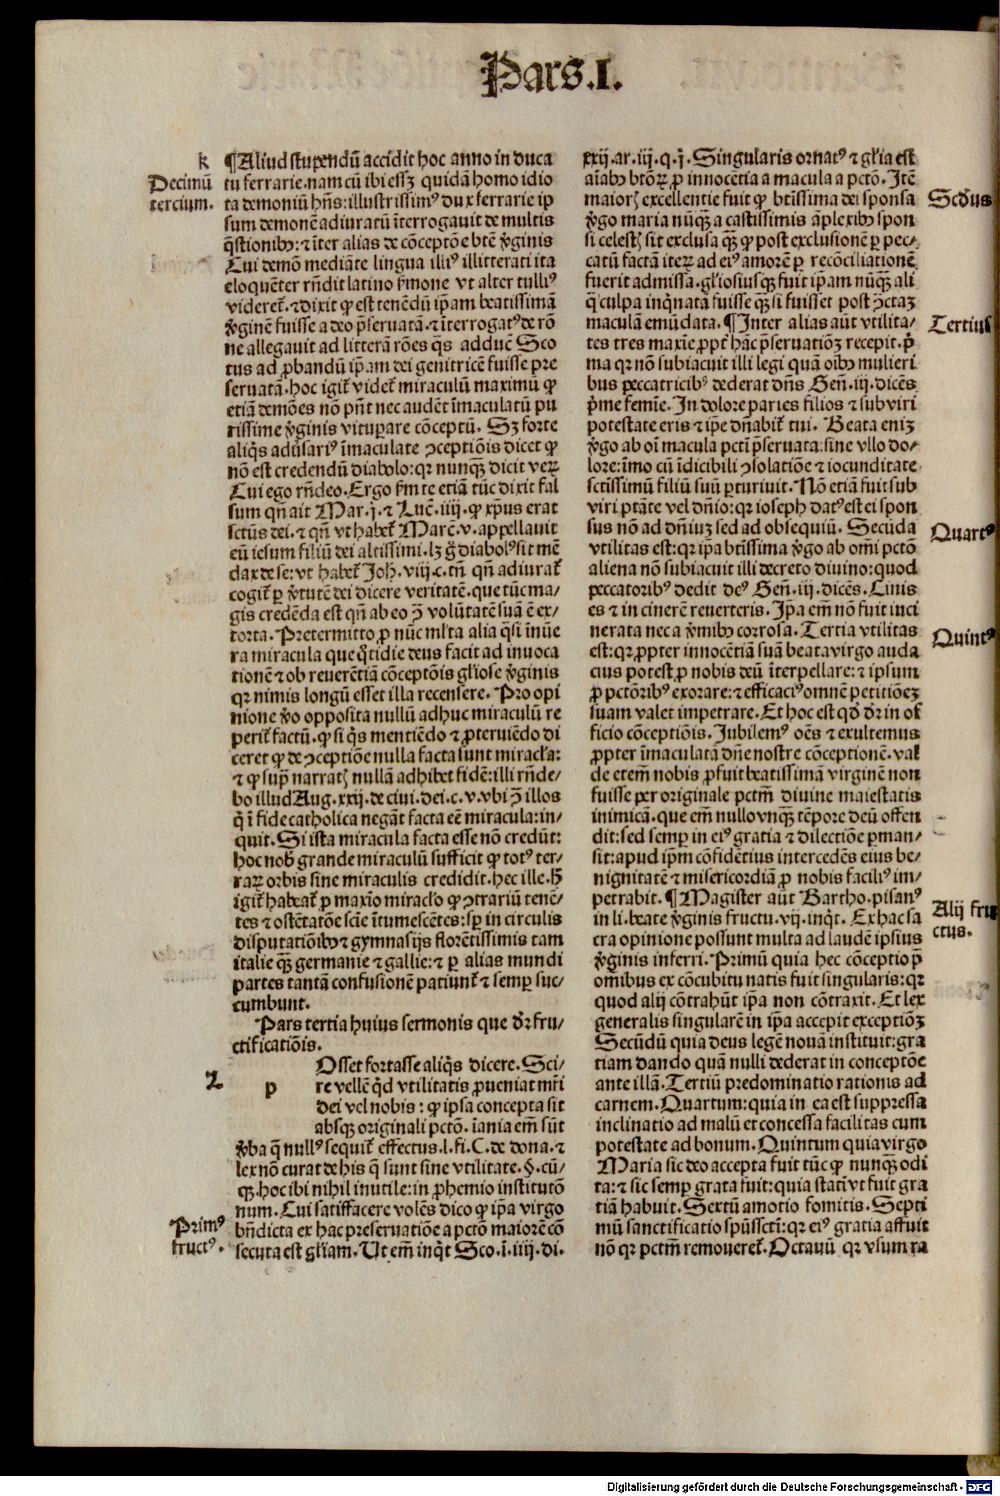 Pars.I.
k
Decimū
tercium.
¶Aliud stupendū accidit hoc anno in duca
tu ferrarie.nam cū ibi essꝫ quidā homo idio
ta demoniū hñs:illustrissimꝰ dux ferrarie ip
sum demonē adiuratū īterrogauit de multis
q̄stionibꝫ:⁊ īter alias de cōceptōe btē ṽginis
Cui demō mediāte lingua illiꝰ illitterati ita
eloquēter rñdit latino ẜmone vt alter tulliꝰ
videret᷑.⁊ dixit ꝙ est tenēdū ip̄am beatissimā
ṽginē fuisse a deo p̄seruatā.⁊ īterrogatꝰ de rō
ne allegauit ad litterā rōes q̄s adduc̄ Sco
tus ad ꝓbandū ip̄am dei genitricē fuisse pre
seruatā.hoc igit᷑ videt᷑ miraculū maximū ꝙ
etiā demōes nō pñt nec audēt īmaculatū pu
rissime ṽginis vituꝑare cōceptū. Sꝫ forte
aliq̄s aduẜariꝰ īmaculate ꝯceptiōis dicet ꝙ
nō est credendū diabolo:qꝛ nunqꝫ dicit veꝝ
Cui ego rñdeo.Ergo ẜm te etiā tūc dixit fal
sum qñ ait Mar.j.⁊ Luc̄.iiij.ꝙ xp̄us erat
sctūs dei.⁊ qñ vt habet᷑ Marc̄.v.appellauit
eū iesum filiū dei altissimi.lꝫ g̊ diabolꝰ sit mē
dax de se:vt habet᷑ Joh̄.viij.c.tn̄ qñ adiurat᷑
cogit᷑ ꝑ ṽtutē dei dicere veritatē.que tūc ma-
gis credēda est qñ ab eo ꝯ̄ volūtatē suā ē ex-
torta. Pretermitto ꝓ nūc ml̄ta alia q̄si īnūe
ra miracula que q̊tidie deus facit ad inuoca
tionē ⁊ ob reuerētiā cōceptōis gl̄iose ṽginis
qꝛ nimis longū esset illa recensere. Pro opi
nione ṽo opposita nullū adhuc miraculū re
perit᷑ factū.ꝙ si q̄s mentiēdo ⁊ ꝓteruiēdo di
ceret ꝙ de ꝯceptiōe nulla facta sunt miracl̄a:
⁊ ꝙ sup̄ narratꝭ nullā adhibet fidē:illi rñde-
bo illud Aug.xxij.de ciui.dei.c.v.vbi ꝯ̄ illos
q̄ ī fide catholica negāt facta eē miracula:in-
quit. Si ista miracula facta esse nō credūt:
hoc nob̄ grande miraculū sufficit ꝙ totꝰ ter-
raꝝ orbis sine miraculis credidit.hec ille.h̄
igit᷑ habeāt᷑ ꝑ maxīo miracl̄o ꝙ ꝯtrariū tenē-
tes ⁊ ostētatōe scīe ītumescētes:sꝑ in circulis
disputatiōibꝫ ⁊ gymnasijs florētissimis tam
italie qꝫ germanie ⁊ gallie:⁊ ꝑ alias mundi
partes tantā confusionē patiunt᷑ ⁊ semꝑ suc-
cumbunt.
Pars tertia huius sermonis que dr̄ fru-
ctificatiōis.
2
p
Osset fortasse aliq̄s dicere. Sci-
re vellē q̄d vtilitatis ꝓueniat mr̄i
dei vel nobis: ꝙ ipsa concepta sit
absqꝫ originali pctō. iania em̄ sūt
ṽba q̄ nullꝰ sequit᷑ effectus.l.fi.C.de dona.⁊
lex nō curat de his q̄ sunt sine vtilitate.§.cū-
qꝫ.hoc ibi nihil inutile:in ꝓhemio institutō
num. Cui satiffacere volēs dico ꝙ ip̄a virgo
bñdicta ex hac preseruatiōe a pctō maiorē cō
secuta est gl̄iam. Ut em̄ inq̄t Sco.ī.iiij.di.
Primꝰ
fructꝰ.
xxij.ar.iij.q.j. Singularis ornatꝰ ⁊ gl̄ia est
aīabꝫ btōꝝ ꝓ innocētia a macula a pctō. Itē
maiorꝭ excellentie fuit ꝙ btissima dei sponsa
ṽgo maria nūqꝫ a castissimis āplexibꝫ spon
si celestꝭ sit exclusa qꝫ ꝙ post exclusionē ꝑ pec-
catū factā iteꝝ ad eiꝰ amorē ꝑ recōciliationē
fuerit admissa.gl̄iosiusqꝫ fuit ip̄am nūqꝫ ali
q̄ culpa inq̄natā fuisse qꝫ si fuisset post ꝯctaꝫ
maculā emūdata. ¶Inter alias aūt vtilita-
tes tres maxīe ꝓpt᷑ hāc p̄seruatiōꝫ recepit.p̄
ma qꝛ nō subiacuit illi legi quā oībꝫ mulieri
bus peccatricibꝰ dederat dñs Geñ.iij.dicēs
p̄me femīe. In dolore paries filios ⁊ sub viri
potestate eris ⁊ ip̄e dñabit᷑ tui. Beata eniꝫ
ṽgo ab oī macula pctī p̄seruata:sine vllo do-
lore:īmo cū īdicibili ꝯsolatiōe ⁊ iocunditate
sctīssimū filiū suū ꝑturiuit. Nō etiā fuit sub
viri ptāte vel dñio:qꝛ ioseph datꝰ est ei spon
sus nō ad dñiuꝫ sed ad obsequiū. Secūda
vtilitas est:qꝛ ip̄a btīssima ṽgo ab om̄i pctō
aliena nō subiacuit illi decreto diuino:quod
peccatoribꝰ dedit deꝰ Geñ.iij.dicēs. Cinis
es ⁊ in cinerē reuerteris. Ip̄a em̄ nō fuit inci
nerata nec a ṽmibꝫ corrosa. Tertia vtilitas
est:qꝛ ꝓpter innocētiā suā beata virgo auda
cius potest ꝓ nobis deū īterpellare:⁊ ipsum
ꝓ pctōribꝰ exorare:⁊ efficaciꝰ omnē petitiōeꝫ
suam valet impetrare. Et hoc est qđ dr̄ in of
ficio cōceptiōis. Jubilemꝰ oēs ⁊ exultemus
ꝓpter īmaculatā dñe nostre cōceptionē.val̄
de etem̄ nobis ꝓfuit beatissimā virginē non
fuisse per originale pctm̄ diuine maiestatis
inimicā.que em̄ nullo vnqꝫ tēpore deū offen
dit:sed semꝑ in eiꝰ gratia ⁊ dilectiōe ꝑman-
sit:apud ip̄m cōfidētius intercedēs eius be-
nignitatē ⁊ misericordiā ꝓ nobis faciliꝰ im-
petrabit. ¶Magister aūt Bartho.pisanꝰ
in li.beate ṽginis fructu.vij.inq̄t. Ex hac sa
cra opinione possunt multa ad laudē ipsius
ṽginis inferri. Primū quia hec cōceptio p̄
omibus ex cōcubitu natis fuit singularis:qꝛ
quod alij cōtrahūt ip̄a non cōtraxit. Et lex
generalis singularē in ip̄a accepit exceptiōꝫ
Secūdū quia deus legē nouā instituit:gra
tiam dando quā nulli dederat in conceptōe
ante illā. Tertiū predominatio rationis ad
carnem. Quartum:quia in ea est suppressa
inclinatio ad malū et concessa facilitas cum
potestate ad bonum. Quintum quia virgo
Maria sic deo accepta fuit tūc ꝙ nunqꝫ odi
ta:⁊ sic semꝑ grata fuit:quia statī vt fuit gra
tiā habuit. Sextū amotio fomitis. Septi
mū sanctificatio spūssctī:qꝛ eiꝰ gratia affuit
nō qꝛ pctm̄ remoueret᷑. Octauū qꝛ vsum ra
Scd̄us
Tertius
Quartꝰ
Quintꝰ
Alij fru
ctus.
Digitalisierung gefördert durch die Deutsche Forschungsgemeinschaft - DFG